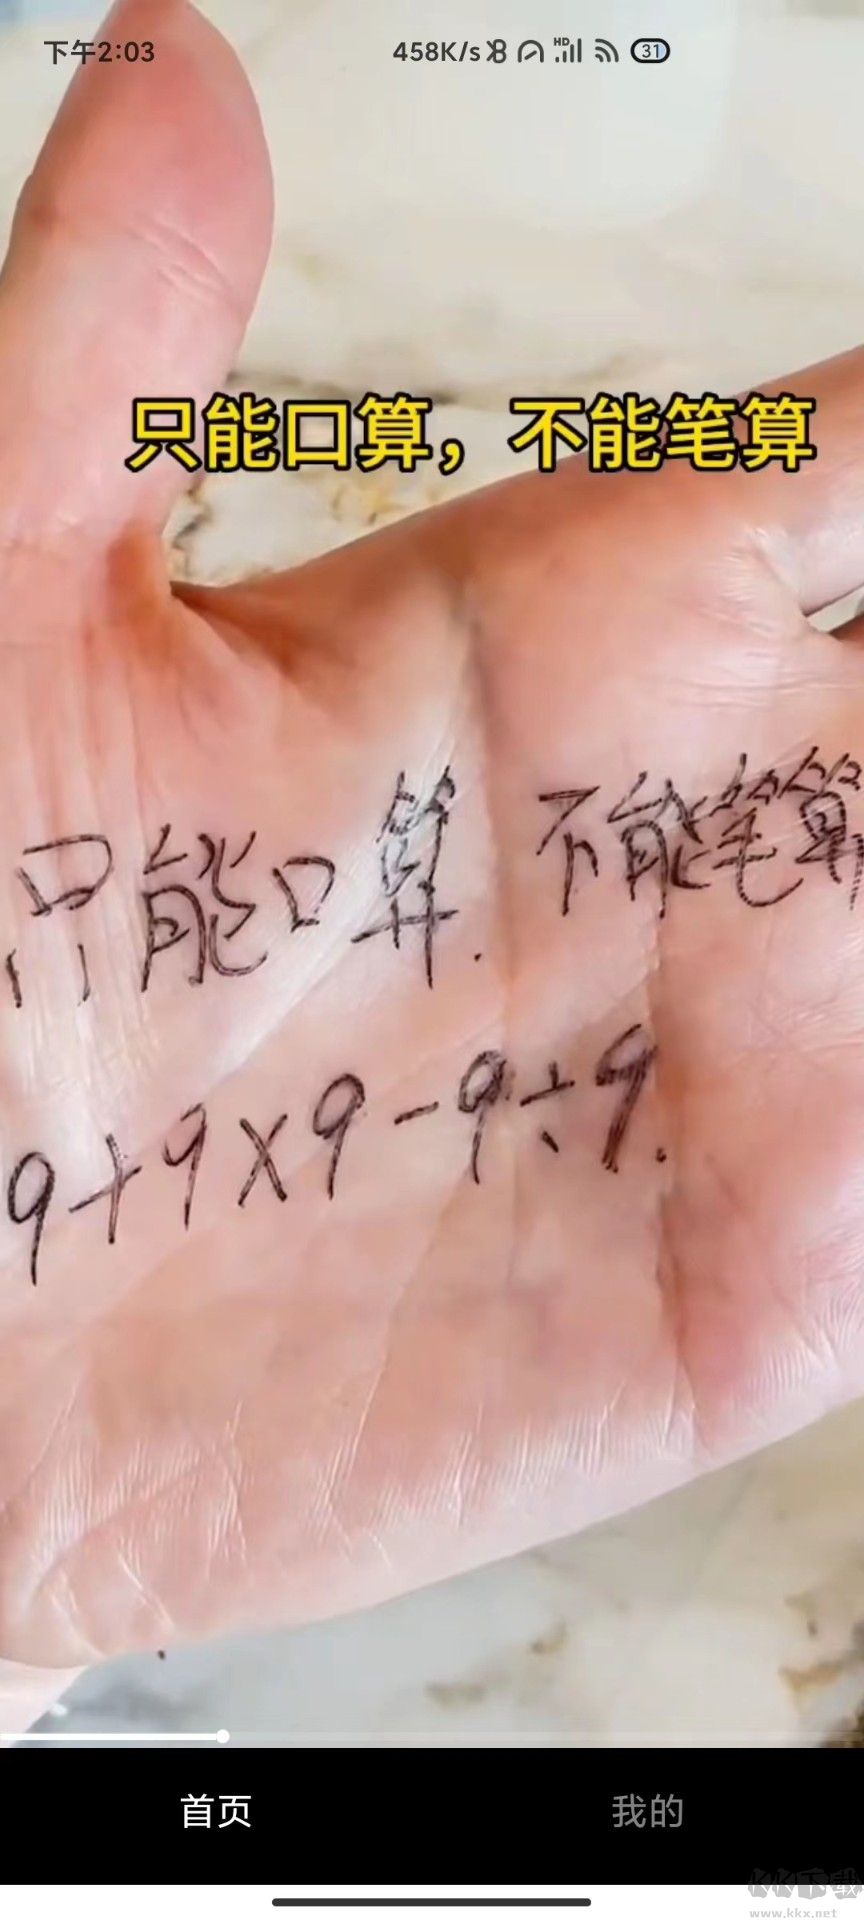 下午2:03 458K/s HD 31
只能口算，不能笔算
只能口算.不能笔算
9+9×9-9÷9.
首页 我的
KK下载
www.kkx.net